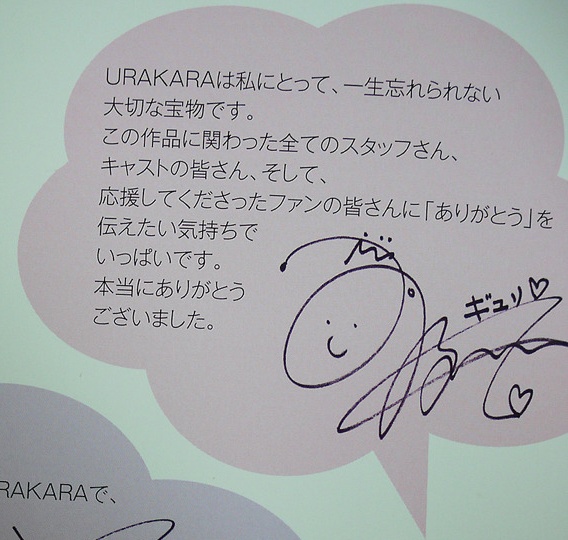 URAKARAは私にとって、一生忘れられない
大切な宝物です。
この作品に関わった全てのスタッフさん、
キャストの皆さん、そして、
応援してくださったファンの皆さんに「ありがとう」を
伝えたい気持ちで
いっぱいです。
本当にありがとう
ございました。
ギュリ♡
RAKARAで、